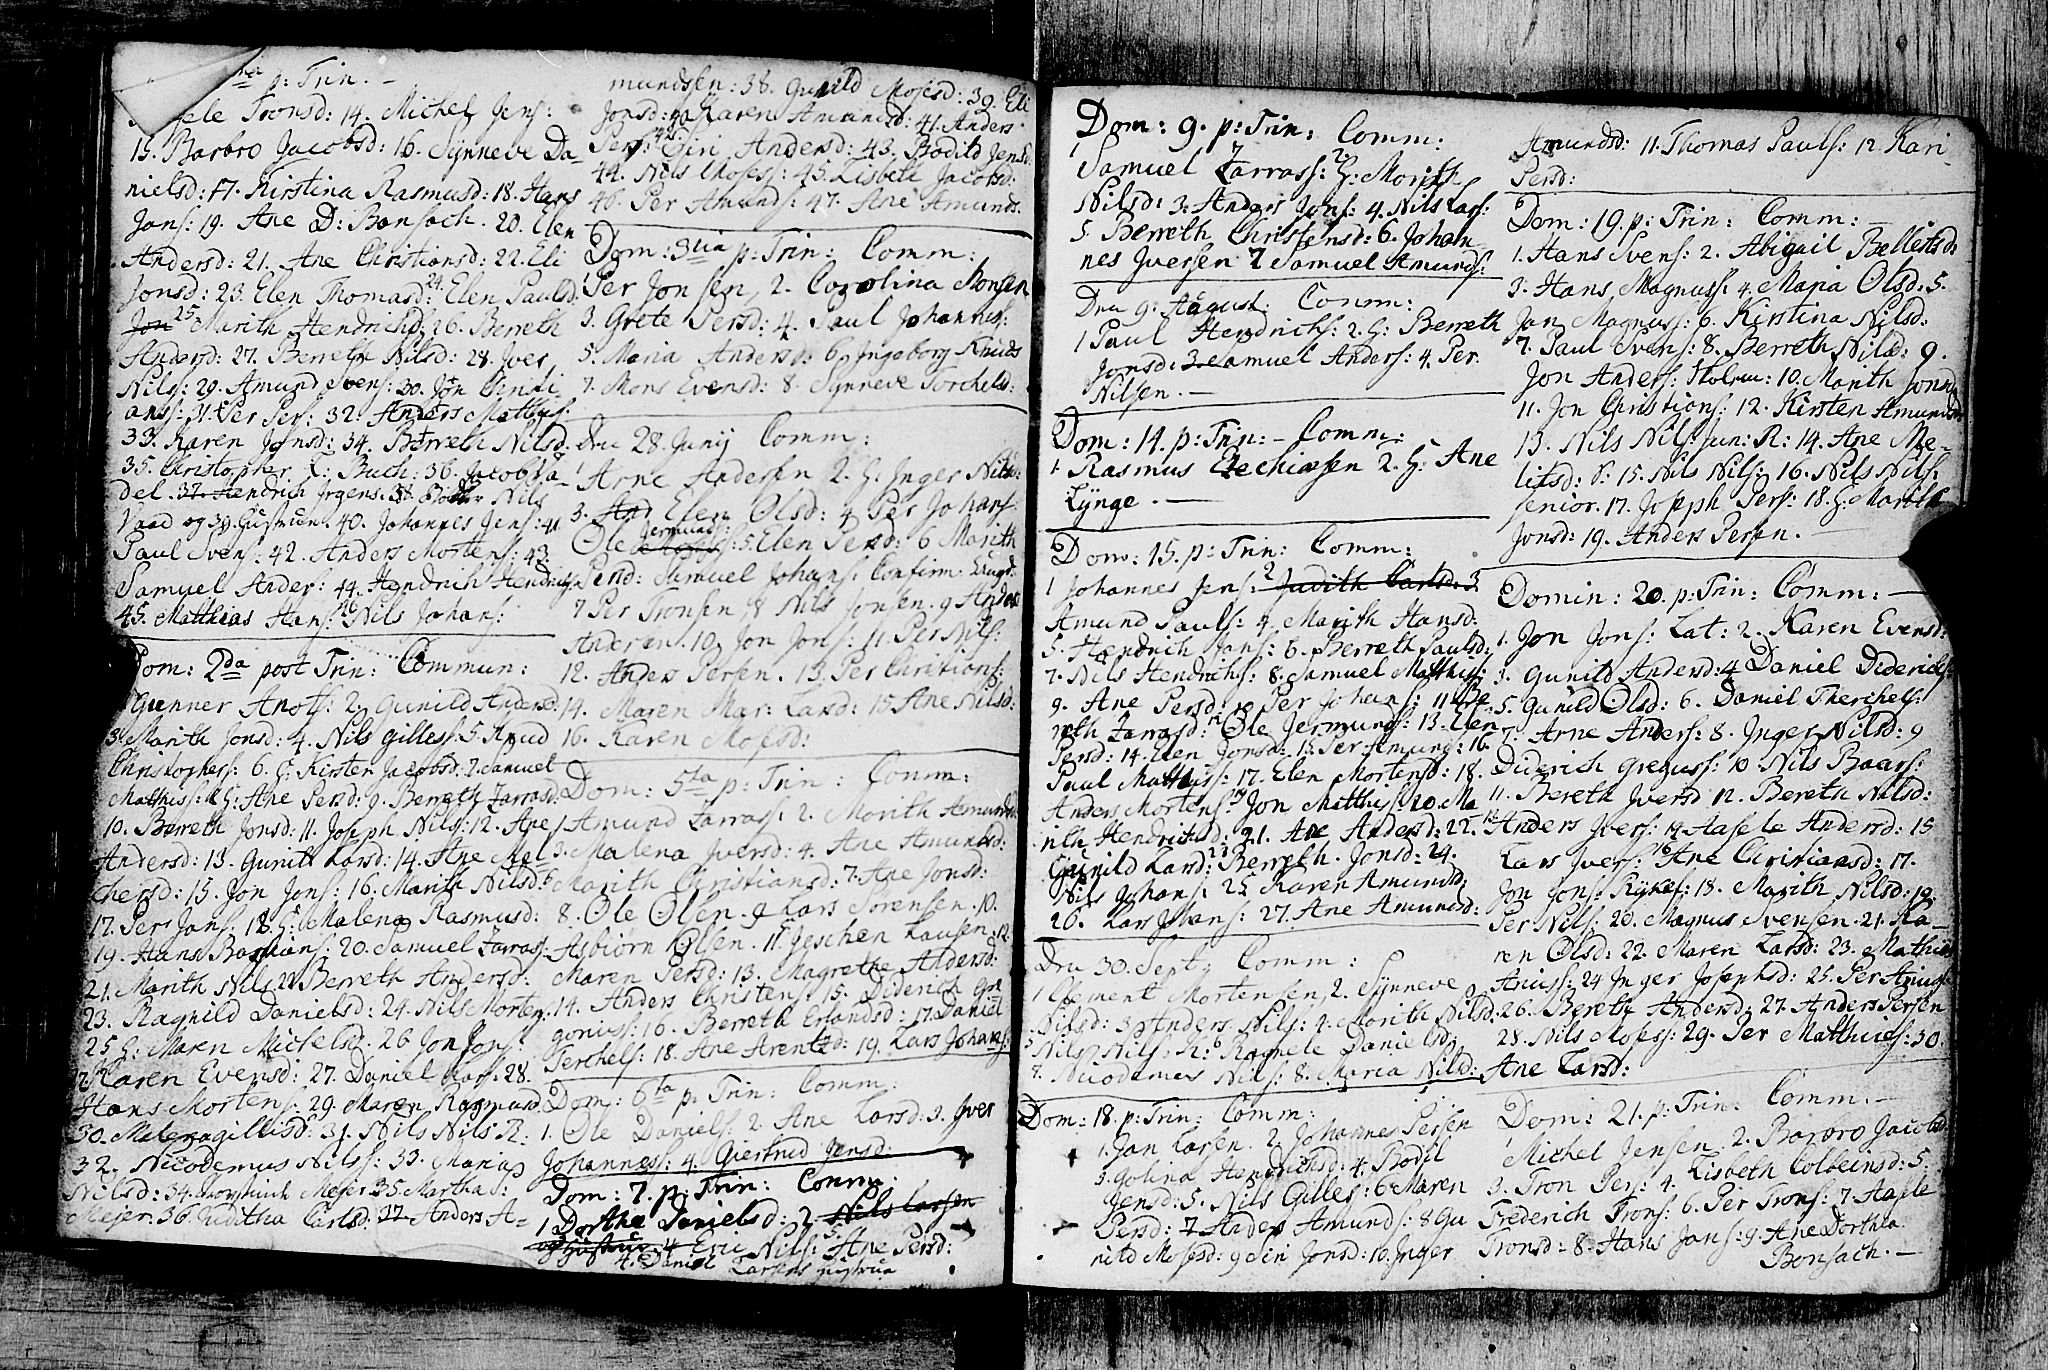 p: Trin. –
Tronsd: 14. Michel Jens:
15. Barbro Jacobsd: 16. Synneve Da-
nielsd: 17. Kirstina Rasmusd: 18. Hans
Jans: 19. Ane D: Bonsach. 20. Elen
Andersd: 21. Ane Christiansd: 22. Eli
Jonsd: 23. Elen Thomasd: 24. Elen Paulsd:
Jon 25. Marith Hendrichsd: 26. Berreth
Andersd: 27. Berreth Nilsd: 28. Iver
Nils: 29. Amund Svens: 30. Jon Christi-
anss: 31. Per Pers: 32. Anders Mathiss:
33. Karen Jonsd: 34. Berreth Nilsd:
35. Christopher L: Buch: 36. Jacob Va-
del. 37. Hendrich Jrgens. 38. Nils
Vaad og 39. Hustrue. 40. Johannes Jens: 41
Paul Svens: 42. Anders Mortens: 43
Samuel Anders: 44. Hendrich Hendrichs:
45. Matthias Hans: 46 Nils Johans:
Dom: 2da post Trin: Commun:
Gunner Anots: 2. Gunild Andersd:
3. Marith Jonsd: 4. Nils Gilless: 5. Knud
Christophers: 6. H: Kirsten Jacobsd: 7. Samuel
Mathiss: 8. H: Ane Persd: 9. Berreth Zarrasd:
10. Berreth Jonsd: 11. Joseph Nils: 12. Ane
Andersd: 13. Gunild Larsd: 14. Ane Mel-
chersd: 15. Jon Jons: 16. Marith Nilsd:
17. Per Jans: 18. H: Malena Rasmusd:
19. Hans Bastians: 20. Samuel Zarras:
21. Marith Nils: 22 Berreth Andersd:
23. Ragnild Danielsd: 24. Nils Morten
25. H: Maren Michelsd. 26 Jon Jons:
Karen Evensd: 27. Daniel Lars: 28.
Hans Mortens: 29. Maren Rasmusd:
30. Malena Gillisd: 31. Nils Nils R:
32. Nicodemus Nilss: 33. Maria
Nilsd: 34. Mejer 35. Martha S:
Mejer. 36. Juditha Carlsd: 37. Anders A-
mundsen: 38. Gunild Mosesd: 39. Eli
Jonsd: 40. Karen Amunds: 41. Anders
Pers: 42. Siri Andersd: 43. Bodild Jensd:
44. Nils Moses: 45. Lisbeth Jacobsd:
46. Per Amunds: 47. Ane Amunds.
Dom: 3tia p: Trin: Comm:
1 Per Jonsen, 2. Carolina Monsen
3. Grete Persd: 4. Paul Johannis:
5. Maria Andersd: 6. Ingeborg Knuds
7. Mons Evensd: 8. Synneve Torchels:
Dnu 28. Junij Comm:
1 Arne Andersen 2. H. Inger Nilsd:
3. And Elen Olsd: 4 Per Johans
Ole Jermunds: 5. Elen Persd: 6 Marith
Persd: Samuel Johans: Confirm:
7 Per Tronsen 8 Nils Jonsen. 9 Anders
Andersen. 10. Jon Jons: 11 Per Nils:
12. Anders Persen. 13. Per Christians:
14. Maren Mar: Larsd: 15 Ane Nilsd:
16. Karen Mosesd:
Dom: 5ta p: Trin: Comm:
1 Amund Zarrass: 2. Marith Amunds:
3. Malena Iversd: 4. Ane Amundsd:
6 Marith Christiansd: 7. Ane Jonsd:
8. Ole Olsen. 9 Lars Sørensen. 10.
Asbiørn Olsen. 11. Jeschen Lausen. 12.
Maren Persd: 13. Magrethe Andersd:
14. Anders Christens: 15. Diderich Gre
goriuss: 16. Berreth Erlandsd: 17. Daniel
Terchels: 18. Ane Arentsd: 19. Lars Johans:
Dom: 6ta p. Trin: Comm:
1. Ole Daniels: 2. Ane Larsd: 3. Iver
Johannes: 4. Giertrud Jensd:
Dom: 7. p: Trin: Comm:
1 Dorthe Danielsd: 2. Nils Larsen
og hustrue 4 Eric Nils: 5 Ane Persd:
4. Daniel Larsens hustrue
Dom: 9. p: Trin: Comm:
1 Samuel Zarrass: 2 H: Marith
Nilsd: 3. Anders Jons: 4. Nils Lars:
5. Berreth Christensd: 6. Johan-
nes Iversen 7 Samuel Amunds:
Dnu 9. August. Comm:
1 Paul Hendrichs: 2. H: Berreth
Jonsd: 3. Samuel Anders: 4. Per
Nilsen. –
Dom: 14. p: Trin: – Comm:
1. Rasmus Zechiassen 2. H: Ane
Lynge. –
Dom: 15. p: Trin: Comm:
1 Johannes Jens: 2 Judith Carlsd: 3.
Amund Pauls: 4. Marith Hansd:
5. Hendrich Jans: 6. Berreth Paulsd:
7. Nils Hendrichs: 8. Samuel Mathiss:
9. Ane Persd: 10 Per Johans: 11 Be
reth Zarrasd: 12 Ole Jermunds: 13. Elen
Persd: 14. Elen Jonsd: 15. Per Amunds: 16
Paul Mathiss: 17. Elen Mortensd: 18.
Anders Mortens: 19 Jon Matthiss: 20. Ma
rith Hendrichsd: 21. Ane Andersd: 22.
Gunild Larsd: 23 Berreth Jonsd: 24.
Nils Johans: 25 Karen Amundsd:
26. Lars Johans: 27. Ane Amundsd:
Dnu 30. Sept: Comm:
1 Clement Mortensen, 2. Synneve
Nilsd: 3 Anders Nils: 4. Marith Nilsd:
5 Nils Nils: R: 6 Ragnele Danielsd:
7. Nicodemus Nils: 8. Maria Nilsd:
Dom: 18. p: Trin: Comm:
1. Jan Larsen. 2. Johannes Persen
3. Golina Hendrichsd: 4. Bodil
Jensd: 5. Nils Gilles: 6 Maren
Persd: 7 Anders Amunds: 8 Gu
nild Mosesd: 9 Siri Jonsd: 10. Inger
Amundsd: 11. Thomas Pauls: 12. Kari
Persd:
Dom: 19. p: Trin: Comm: –
1. Hans Svens: 2. Abigail Bellesd:
3. Hans Magnuss: 4. Maria Olsd: 5.
Jan Magnuss: 6. Kirstina Nilsd:
7. Paul Svens: 8. Berreth Nilsd: 9.
Jon Anders: Holm: 10. Marith Jonsd:
11. Jon Christians: 12. Kirsten Amundsd:
13. Nils Nils: Jun: R: 14. Ane Me-
litsd: S: 15. Nils Nils: 16. Nils Nils:
senior. 17. Joseph Pers: 18. H: Marith
Jonsd: 19. Anders Persen. –
Domin: 20. p: Trin: Comm: –
1. Jon Jons: Lat: 2. Karen Evensd:
3. Gunild Andersd: 4 Daniel Dideriches:
5. Gunild Olsd: 6. Daniel Therchels:
7. Arne Anders: 8. Inger Nilsd: 9
Diderich Greguss: 10. Nils Baars:
11. Bereth Iversd 12. Bereth Nilsd:
13 Anders Ivers: 14 Aasele Andersd: 15
Lars Ivers: 16 Ane Christiansd: 17.
Jon Jons: Rykes: 18. Marith Nilsd: 19.
Per Nils: 20. Magnus Svensen. 21. Ka-
ren Olsd: 22. Maren Larsd: 23. Mathias
Anuss: 24 Inger Josephsd: 25. Per Amunds
26. Bereth Andersd: 27. Anders Persen
28. Nils Moses: 29. Per Matthies: 30.
Ane Larsd:
Dom: 21. p: Trin: Comm: –
1 Michel Jensen. 2. Barbro Jacobsd:
3. Tron Pers: 4. Lisbeth Colbeinsd: 5.
Frederich Trons: 6. Per Trons: 7 Aasele
Tronsd: 8. Hans Jans: 9. Ane Dorthea
Bonsach. –